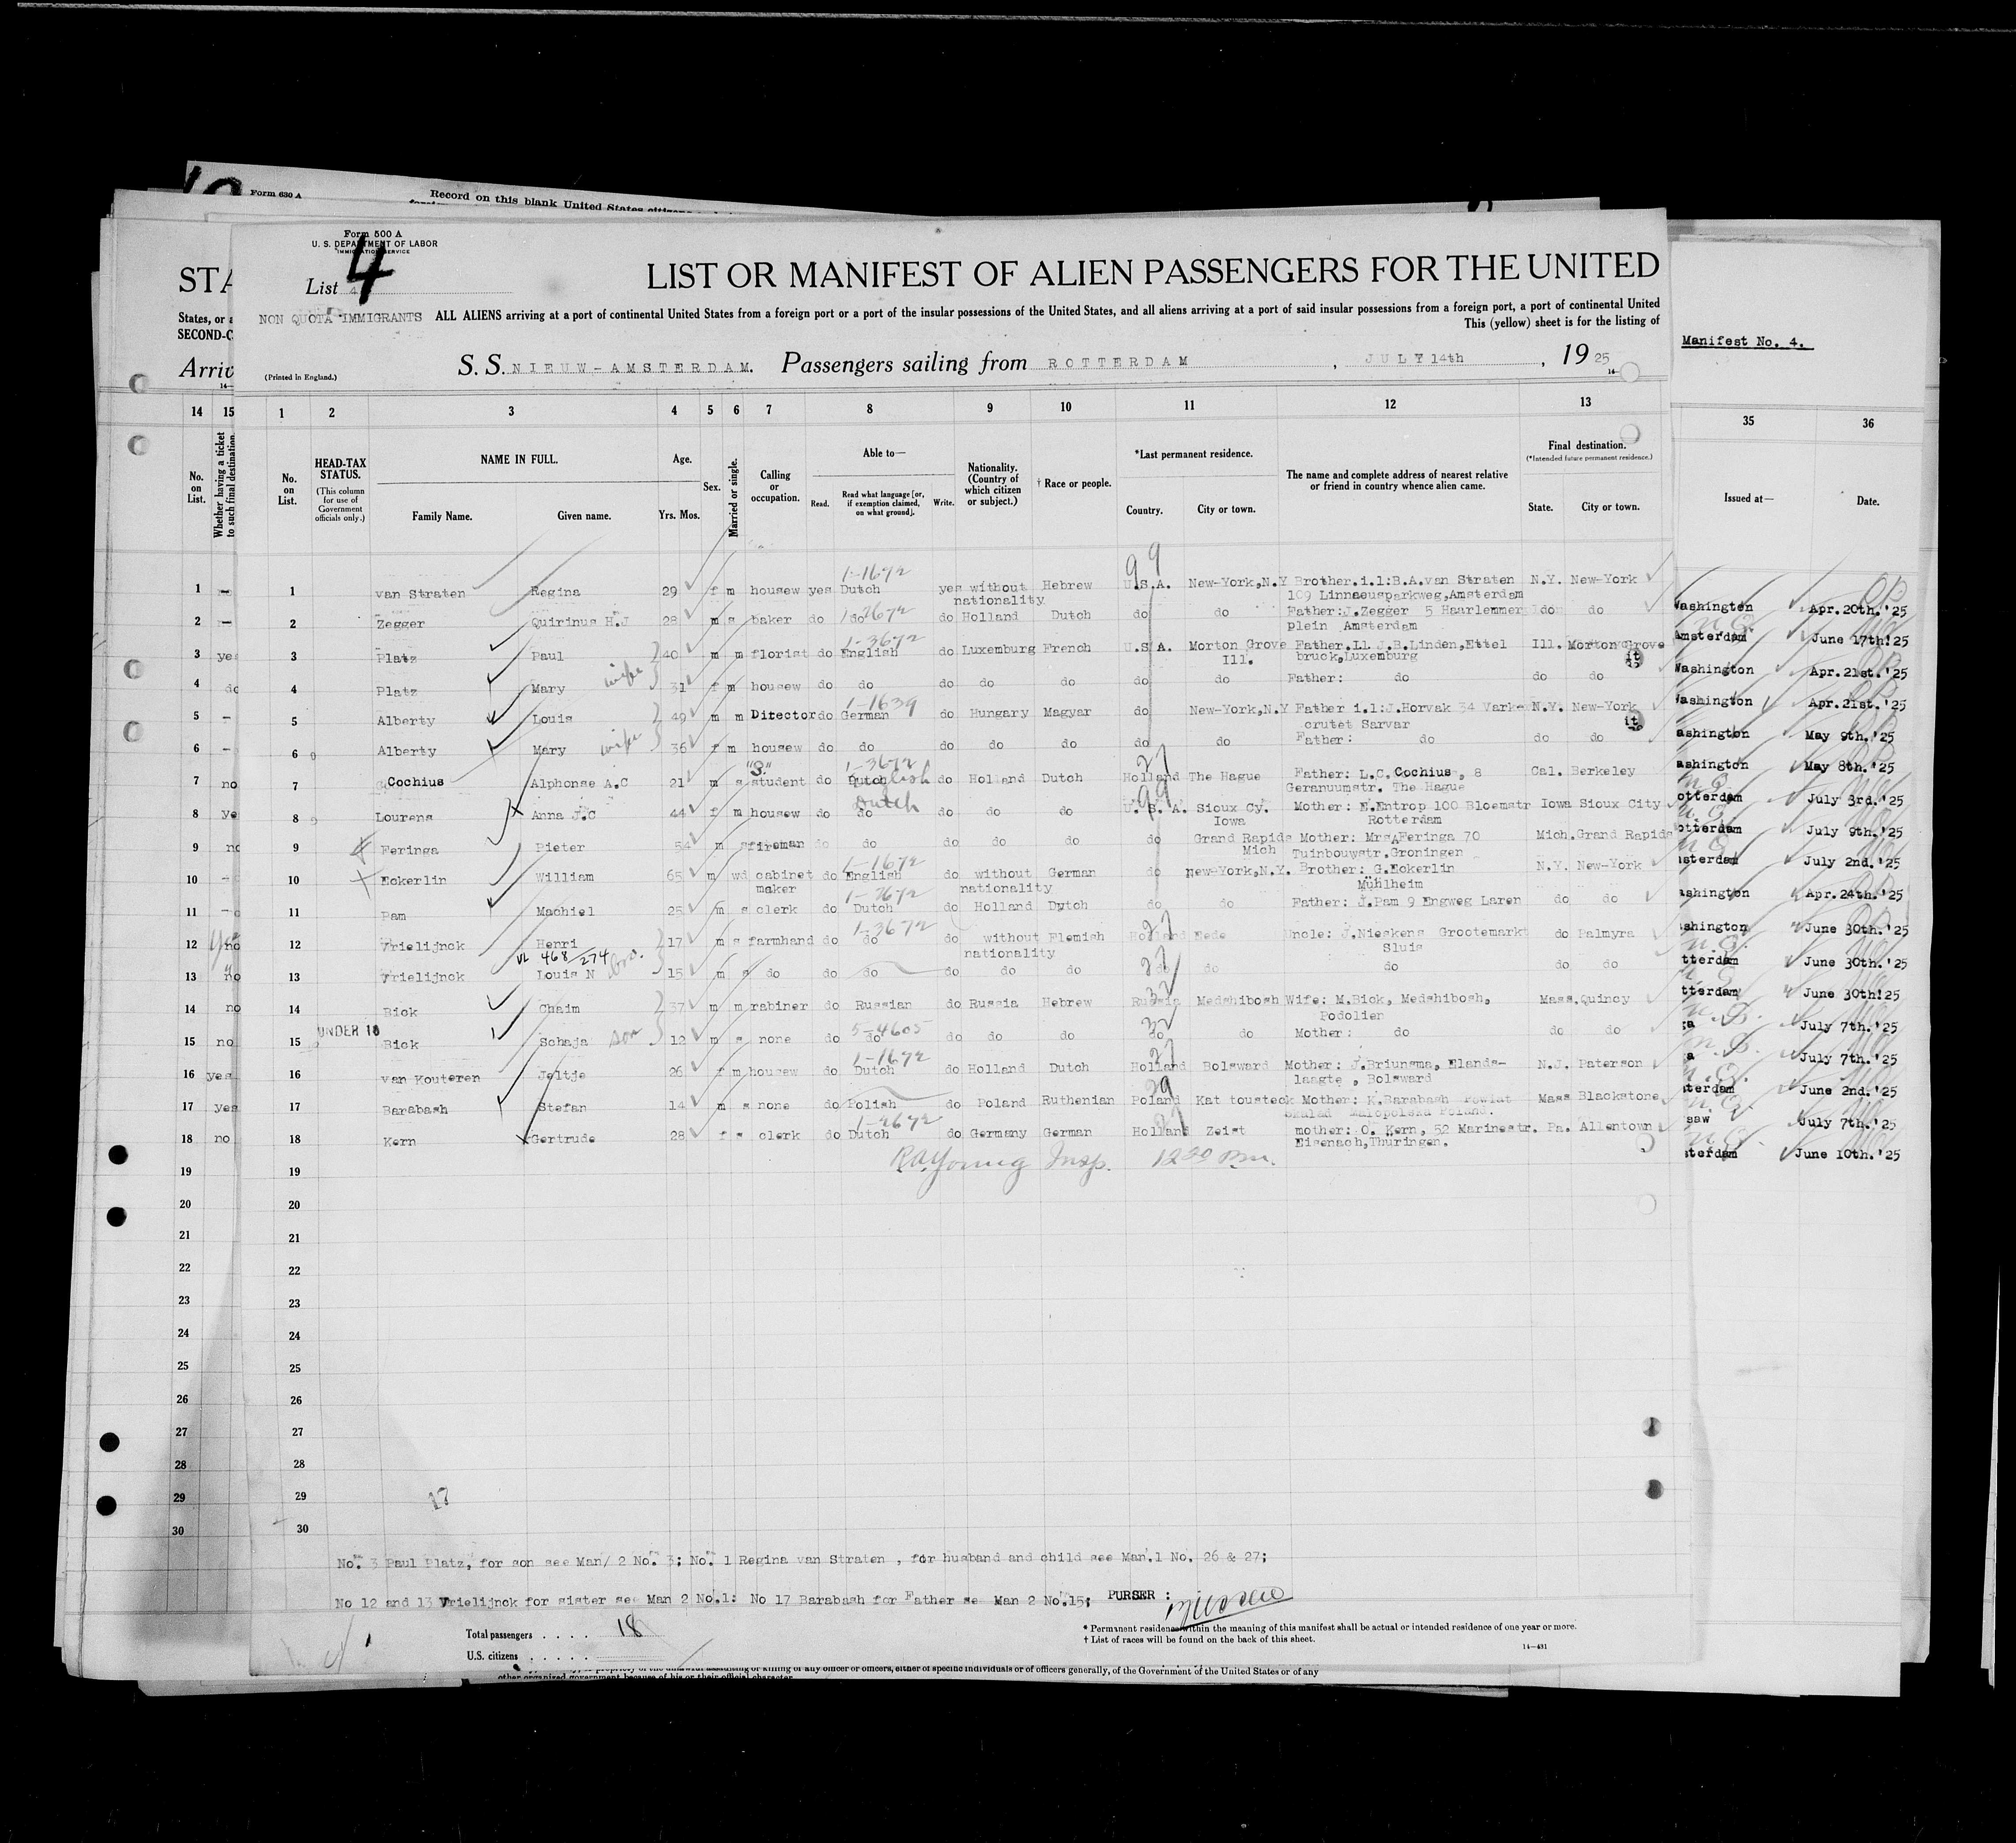 Form 630 A
Record on this blank United States citizens
Form 500 A
U. S. DEPARTMENT OF LABOR
IMMIGRATION SERVICE
List 4
4
STA
LIST OR MANIFEST OF ALIEN PASSENGERS FOR THE UNITED
States, or a
SECOND-C
NON QUOTA IMMIGRANTS ALL ALIENS arriving at a port of continental United States from a foreign port or a port of the insular possessions of the United States, and all aliens arriving at a port of said insular possessions from a foreign port, a port of continental United
This (yellow) sheet is for the listing of
Manifest No. 4.
Arriv
S. S. NIEUW-AMSTERDAM. Passengers sailing from ROTTERDAM , JULY 14th , 19 25
(Printed in England.)
14 15 1 2 3 4 5 6 7 8 9 10 11 12 13 35 36
No. on List.
Whether having a ticket to such final destination.
No. on List.
HEAD-TAX STATUS.
(This column for use of Government officials only.)
NAME IN FULL.
Family Name. Given name.
Age.
Yrs. Mos.
Sex.
Married or single.
Calling or occupation.
Able to—
Read. Read what language [or, if exemption claimed, on what ground]. Write.
Nationality. (Country of which citizen or subject.)
† Race or people.
*Last permanent residence.
Country. City or town.
The name and complete address of nearest relative or friend in country whence alien came.
Final destination.
(*Intended future permanent residence.)
State. City or town.
Issued at— Date.
1 – 1 van Straten Regina 29 f m housew yes Dutch 1-1672 yes without nationality Hebrew 99 U.S.A. New-York,N.Y Brother.i.l:B.A.van Straten N.Y. New-York
109 Linnaeusparkweg,Amsterdam
Washington Apr. 20th.'25
2 – 2 Zegger Quirinus H.J 28 m s baker do do do Holland Dutch do do Father:J.Zegger 5 Haarlemmer do do
plein Amsterdam
Amsterdam June 17th!25
3 yes 3 Platz Paul 40 m m florist do English 1-3672 do Luxemburg French U.S.A. Morton Grove Father.Ll J.B.Linden,Ettel Ill. Morton Grove
Ill. bruck,Luxemburg
Washington Apr.21st.'25
4 do 4 Platz Mary wife 31 f m housew do do do do do do do Father: do do do
Washington Apr.21st.'25
5 – 5 Alberty Louis 49 m m Director do German 1-1639 do Hungary Magyar do New-York,N.Y Father i.l:J.Horvak 34 Vark- N.Y. New-York
crutet Sarvar
ashington May 9th.'25
6 – 6 Alberty Mary wife 36 f m housew do do do do do do do Father: do do do
ashington May 8th.'25
7 no 7 Cochius Alphonse A.C 21 m s "S." student do 1-3672 English do Holland Dutch 27 Holland The Hague Father: L.C.Cochius, 8 Cal. Berkeley
Geranuumstr. The Hague
otterdam July 3rd.'25
8 ye 8 Lourens Anna J.C 44 f m housew do do Dutch do do do 99 U.S.A. Sioux Cy. Mother: E.Entrop 100 Bloemstr Iowa Sioux City
Iowa Rotterdam
otterdam July 9th.'25
9 no 9 Feringa Pieter 54 m s fireman do do do do do do Grand Rapids Mother: Mrs A Feringa 70 Mich. Grand Rapids
Mich Tuinbouwstr.Groningen
msterdam July 2nd.'25
10 – 10 Eckerlin William 65 m wd cabinet maker do English 1-1672 do without nationality German do New-York,N.Y. Brother: G.Eckerlin N.Y. New-York
Mühlheim
ashington Apr.24th.'25
11 – 11 Pam Machiel 25 m s clerk do Dutch do Holland Dutch do do Father: J.Pam 9 Engweg Laren do do
shington June 30th.'25
12 no 12 Vrielijnck Henri 17 m s farmhand do do 1-3672 do without nationality Flemish 27 Holland Eede Uncle: J.Nieskens Grootemarkt do Palmyra
Sluis
tterdam June 30th.'25
468/274
13 no 13 Vrielijnck Louis N bro. 15 m s do do do do do do 27 do do do do do
tterdam June 30th!25
14 no 14 Bick Chaim 37 m m rabiner do Russian do Russia Hebrew 32 Russia Medshibosh Wife: M.Bick, Medshibosh, Mass. Quincy
Podolien
ga July 7th.'25
UNDER 16
15 no 15 Bick Schaja son 12 m s none do do 5-4605 do do do 32 do do Mother: do do do
a July 7th.'25
16 yes 16 van Kouteren Jeltje 26 f m housew do Dutch 1-1672 do Holland Dutch 27 Holland Bolsward Mother: J.Briunsma, Elands- N.J. Paterson
laagte , Bolsward
sterdam June 2nd.'25
17 yes 17 Barabash Stefan 14 m s none do Polish do Poland Ruthenian 29 Poland Kat tousteck Mother: K.Barabash Powiat Mass Blackstone
Skalad Malopolska Poland.
saw July 7th.'25
18 no 18 Kern Gertrude 28 f s clerk do Dutch do Germany German 27 Holland Zeist mother: O. Kern, 52 Marinestr. Pa. Allentown
Eisenach,Thuringen.
sterdam June 10th.'25
R.A. Young Insp. 12 20 p.m.
19 19
20 20
21 21
22 22
23 23
24 24
25 25
26 26
27 27
28 28
29 29
30 30
17
No. 3 Paul Platz, for son see Man/ 2 No. 3; No. 1 Regina van Straten , for husband and child see Man.1 No. 26 & 27;
No 12 and 13 Vrielijnck for sister see Man 2 No.1: No 17 Barabash for Father se Man 2 No.15; PURSER :
Total passengers . . . . 18
U.S. citizens . . . . .
* Permanent residence within the meaning of this manifest shall be actual or intended residence of one year or more.
† List of races will be found on the back of this sheet.
14—431
assaulting or killing of any officer or officers, either of specific individuals or of officers generally, of the Government of the United States or of any
other organized government because of his or their official character